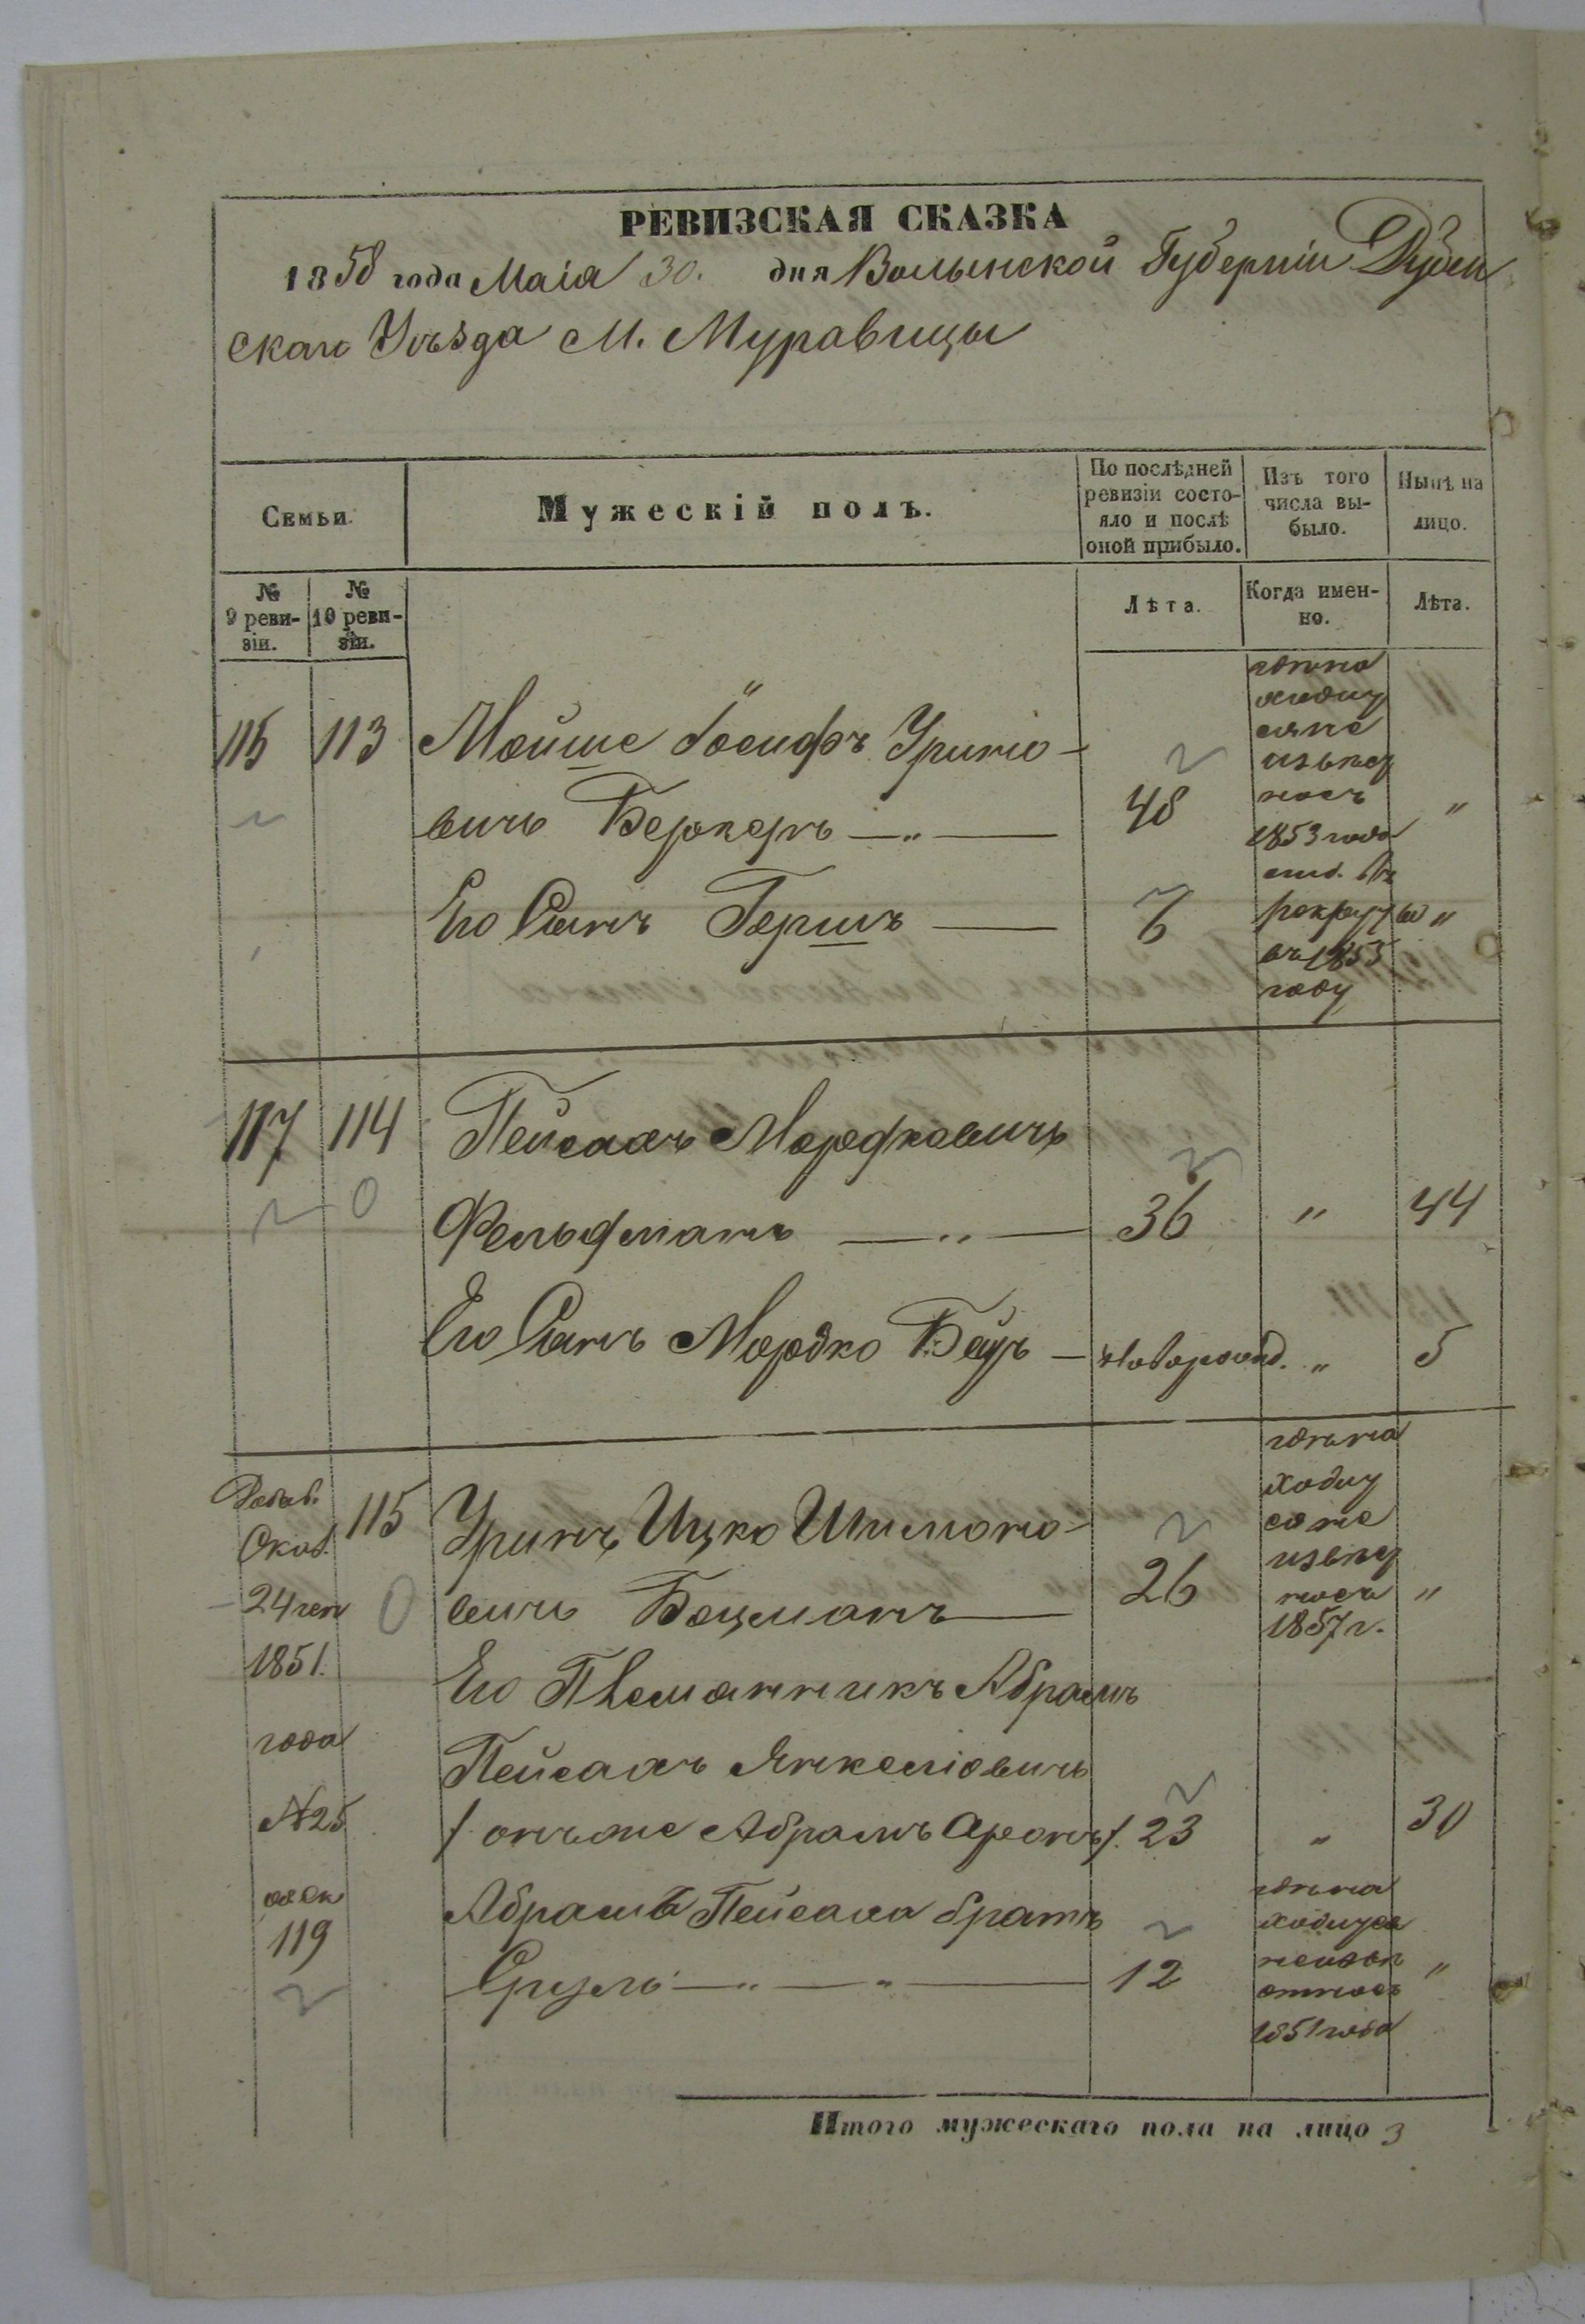 РЕВИЗСКАЯ СКАЗКА
1858 года Маія 30. дня Волынской Губерніи Дубен
скаго Уѣзда М. Муравицы
Семьи.
Мужескій полъ.
По послѣдней
ревизіи состо-
яло и послѣ
оной прибыло.
Изъ того
числа вы-
было.
Нынѣ на
лицо.
№
9 реви-
зіи.
№
10 реви-
зіи.
Лѣта.
Когда имен-
но.
Лѣта.
115 113 Мойше Іосифъ Уринo-
вичъ 48 1853 года "
Его Сынъ Гершъ 6 рекруты "
въ 1853
году
117 114 Пейсахъ Мордковичъ
Фельдманъ — " — 36 " 44
Его Сынъ Мордко Беръ — новорожд. " 5
115 Уринъ Ицко Шимоно-
24 ген
вичъ Боцманъ 26 1857 г. "
1851.
Его Племянникъ Абрамъ
года
Пейсахъ Янкеліовичъ
№ 25 / онъ же Абрамъ Аронъ /. 23 " 30
119
Абрама Пейсаха братъ
Сруль — " — " — 12 1851 года "
Итого мужескаго пола на лицо 3